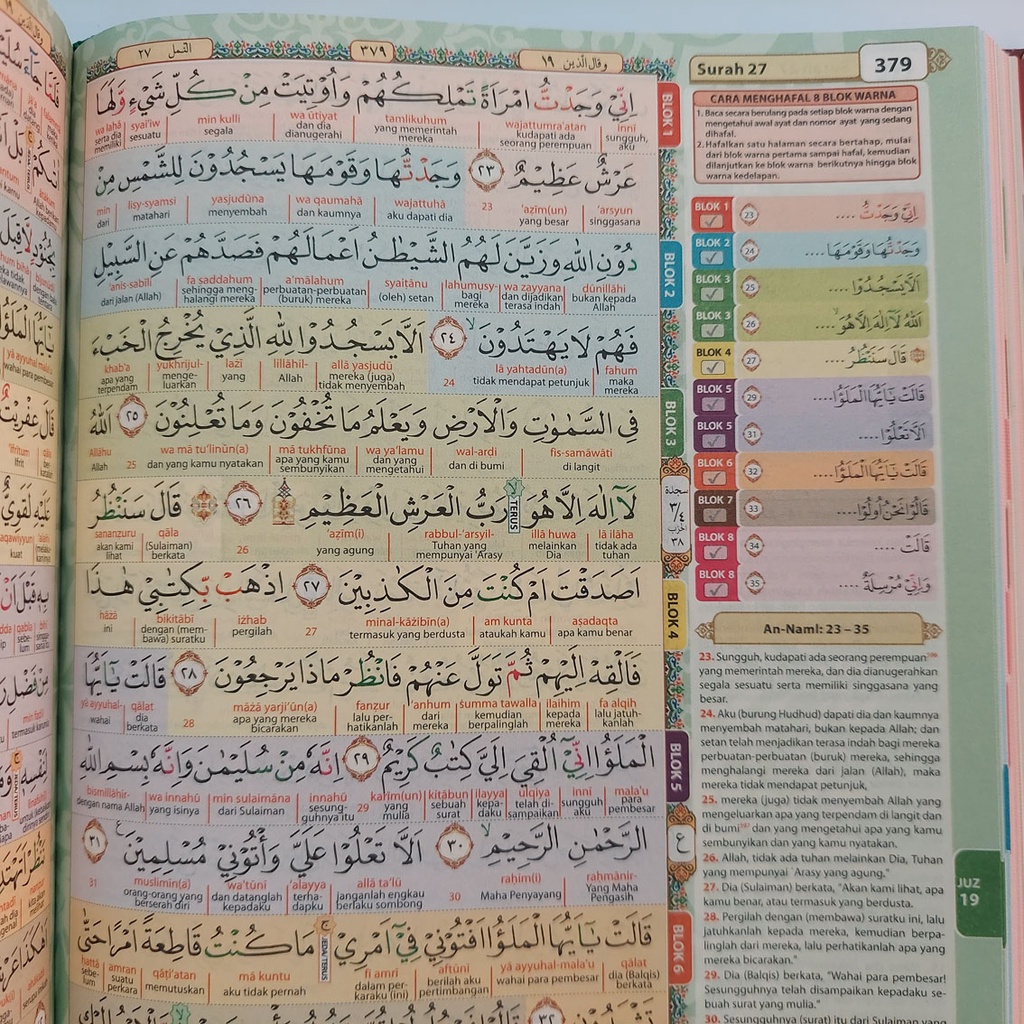 النمل ٢٧
٣٧٩
وقال الذين ١٩
اِنِّيْ وَجَدْتُّ امْرَاَةً تَمْلِكُهُمْ وَاُوْتِيَتْ مِنْ كُلِّ شَيْءٍ وَّلَهَا
inni sungguh, aku
wajattumra'atan kudapati ada seorang perempuan
tamlikuhum yang memerintah mereka
wa ūtiyat dan dia dianugerahi
min kulli segala
syai'iw sesuatu
wa lahā serta dia memiliki
عَرْشٌ عَظِيْمٌ ٢٣ وَجَدْتُّهَا وَقَوْمَهَا يَسْجُدُوْنَ لِلشَّمْسِ مِنْ
'arsyun singgasana
'aẓīm(un) yang besar
23
wajattuhā aku dapati dia
wa qaumahā dan kaumnya
yasjudūna menyembah
lisy-syamsi matahari
min dari
دُوْنِ اللّٰهِ وَزَيَّنَ لَهُمُ الشَّيْطٰنُ اَعْمَالَهُمْ فَصَدَّهُمْ عَنِ السَّبِيْلِ
dūnillāhi bukan kepada Allah
wa zayyana dan dijadikan terasa indah
lahumusy- bagi mereka
syaiṭānu (oleh) setan
a'mālahum perbuatan-perbuatan (buruk) mereka
fa ṣaddahum sehingga menghalangi mereka
'anis-sabīli dari jalan (Allah)
فَهُمْ لَا يَهْتَدُوْنَ ۙ ٢٤ اَلَّا يَسْجُدُوْا لِلّٰهِ الَّذِيْ يُخْرِجُ الْخَبْءَ
fahum maka mereka
lā yahtadūn(a) tidak mendapat petunjuk
24
allā yasjudū mereka (juga) tidak menyembah
lillāhil- Allah
lażī yang
yukhrijul- mengeluarkan
khab'a apa yang terpendam
فِى السَّمٰوٰتِ وَالْاَرْضِ وَيَعْلَمُ مَا تُخْفُوْنَ وَمَا تُعْلِنُوْنَ ٢٥ اَللّٰهُ
fis-samāwāti di langit
wal-arḍi dan di bumi
wa ya'lamu dan yang mengetahui
mā tukhfūna apa yang kamu sembunyikan
wa mā tu'linūn(a) dan yang kamu nyatakan
25
Allāhu Allah
لَآ اِلٰهَ اِلَّا هُوَ ۙ رَبُّ الْعَرْشِ الْعَظِيْمِ ۩ ٢٦ ۞ قَالَ سَنَنْظُرُ
TERUS
lā ilāha tidak ada tuhan
illā huwa melainkan Dia
rabbul-'arsyil- Tuhan yang mempunyai 'Arasy
'aẓīm(i) yang agung
26
qāla (Sulaiman) berkata
sananẓuru akan kami lihat
اَصَدَقْتَ اَمْ كُنْتَ مِنَ الْكٰذِبِيْنَ ٢٧ اِذْهَبْ بِّكِتٰبِيْ هٰذَا
aṣadaqta apa kamu benar
am kunta ataukah kamu
minal-kāżibīn(a) termasuk yang berdusta
27
iżhab pergilah
bikitābī dengan (membawa) suratku
hāżā ini
فَاَلْقِهْ اِلَيْهِمْ ثُمَّ تَوَلَّ عَنْهُمْ فَانْظُرْ مَاذَا يَرْجِعُوْنَ ٢٨ قَالَتْ يٰٓاَيُّهَا
fa alqih lalu jatuhkanlah
ilaihim kepada mereka
ṡumma tawalla kemudian berpalinglah
'anhum dari mereka
fanẓur lalu perhatikanlah
māżā yarji'ūn(a) apa yang mereka bicarakan
28
qālat dia berkata
yā ayyuhal- wahai
الْمَلَؤُا اِنِّيْٓ اُلْقِيَ اِلَيَّ كِتٰبٌ كَرِيْمٌ ٢٩ اِنَّهٗ مِنْ سُلَيْمٰنَ وَاِنَّهٗ بِسْمِ اللّٰهِ
mala'u para pembesar
innī sungguh aku
ulqiya telah disampaikan
ilayya kepadaku
kitābun sebuah surat
karīm(un) yang mulia
29
innahū sesungguhnya itu
min sulaimāna dari Sulaiman
wa innahū yang isinya
bismillāhir- dengan nama Allah
الرَّحْمٰنِ الرَّحِيْمِ ۙ ٣٠ اَلَّا تَعْلُوْا عَلَيَّ وَأْتُوْنِيْ مُسْلِمِيْنَ ࣖ ٣١
rahmānir- Yang Maha Pengasih
rahīm(i) Maha Penyayang
30
allā ta'lū janganlah engkau berlaku sombong
'alayya terhadapku
wa'tūnī dan datanglah kepadaku
muslimīn(a) orang-orang yang berserah diri
31
قَالَتْ يٰٓاَيُّهَا الْمَلَؤُا اَفْتُوْنِيْ فِيْٓ اَمْرِيْۚ مَا كُنْتُ قَاطِعَةً اَمْرًا حَتّٰى
JEDA/TERUS
qālat dia (Balqis) berkata
yā ayyuhal-mala'u wahai para pembesar
aftūnī berilah aku pertimbangan
fī amrī dalam perkaraku (ini)
mā kuntu aku tidak pernah
qāṭi'atan memutuskan
amran suatu perkara
ḥattā sebelum
٣٢
BLOK 1
BLOK 2
BLOK 3
سجدة
٣/٤
حزب
٣٨
BLOK 4
BLOK 5
ع
BLOK 6
Surah 27
379
CARA MENGHAFAL 8 BLOK WARNA
1. Baca secara berulang pada setiap blok warna dengan
mengetahui awal ayat dan nomor ayat yang sedang
dihafal.
2. Hafalkan satu halaman secara bertahap, mulai
dari blok warna pertama sampai hafal, kemudian
dilanjutkan ke blok warna berikutnya hingga blok
warna kedelapan.
BLOK 1 23 اِنِّيْ وَجَدْتُّ ....
BLOK 2 24 وَجَدْتُّهَا وَقَوْمَهَا....
BLOK 3 25 اَلَّا يَسْجُدُوْا ....
BLOK 3 26 اَللّٰهُ لَآ اِلٰهَ اِلَّا هُوَۙ....
BLOK 4 27 ۞ قَالَ سَنَنْظُرُ....
BLOK 5 29 قَالَتْ يٰٓاَيُّهَا الْمَلَؤُا....
BLOK 5 31 اَلَّا تَعْلُوْا....
BLOK 6 32 قَالَتْ يٰٓاَيُّهَا الْمَلَؤُا....
BLOK 7 33 قَالُوْا نَحْنُ اُولُوْا....
BLOK 8 34 قَالَتْ ....
BLOK 8 35 وَاِنِّيْ مُرْسِلَةٌ....
An-Naml: 23 – 35
23. Sungguh, kudapati ada seorang perempuan
yang memerintah mereka, dan dia dianugerahkan
segala sesuatu serta memiliki singgasana yang
besar.
24. Aku (burung Hudhud) dapati dia dan kaumnya
menyembah matahari, bukan kepada Allah; dan
setan telah menjadikan terasa indah bagi mereka
perbuatan-perbuatan (buruk) mereka, sehingga
menghalangi mereka dari jalan (Allah), maka
mereka tidak mendapat petunjuk,
25. mereka (juga) tidak menyembah Allah yang
mengeluarkan apa yang terpendam di langit dan
di bumi dan yang mengetahui apa yang kamu
sembunyikan dan yang kamu nyatakan.
26. Allah, tidak ada tuhan melainkan Dia, Tuhan
yang mempunyai `Arasy yang agung."
27. Dia (Sulaiman) berkata, "Akan kami lihat, apa
kamu benar, atau termasuk yang berdusta.
28. Pergilah dengan (membawa) suratku ini, lalu
jatuhkanlah kepada mereka, kemudian berpa-
linglah dari mereka, lalu perhatikanlah apa yang
mereka bicarakan."
29. Dia (Balqis) berkata, "Wahai para pembesar!
Sesungguhnya telah disampaikan kepadaku se-
buah surat yang mulia."
30. Sesungguhnya (surat) itu dari Sulaiman yang
JUZ
19